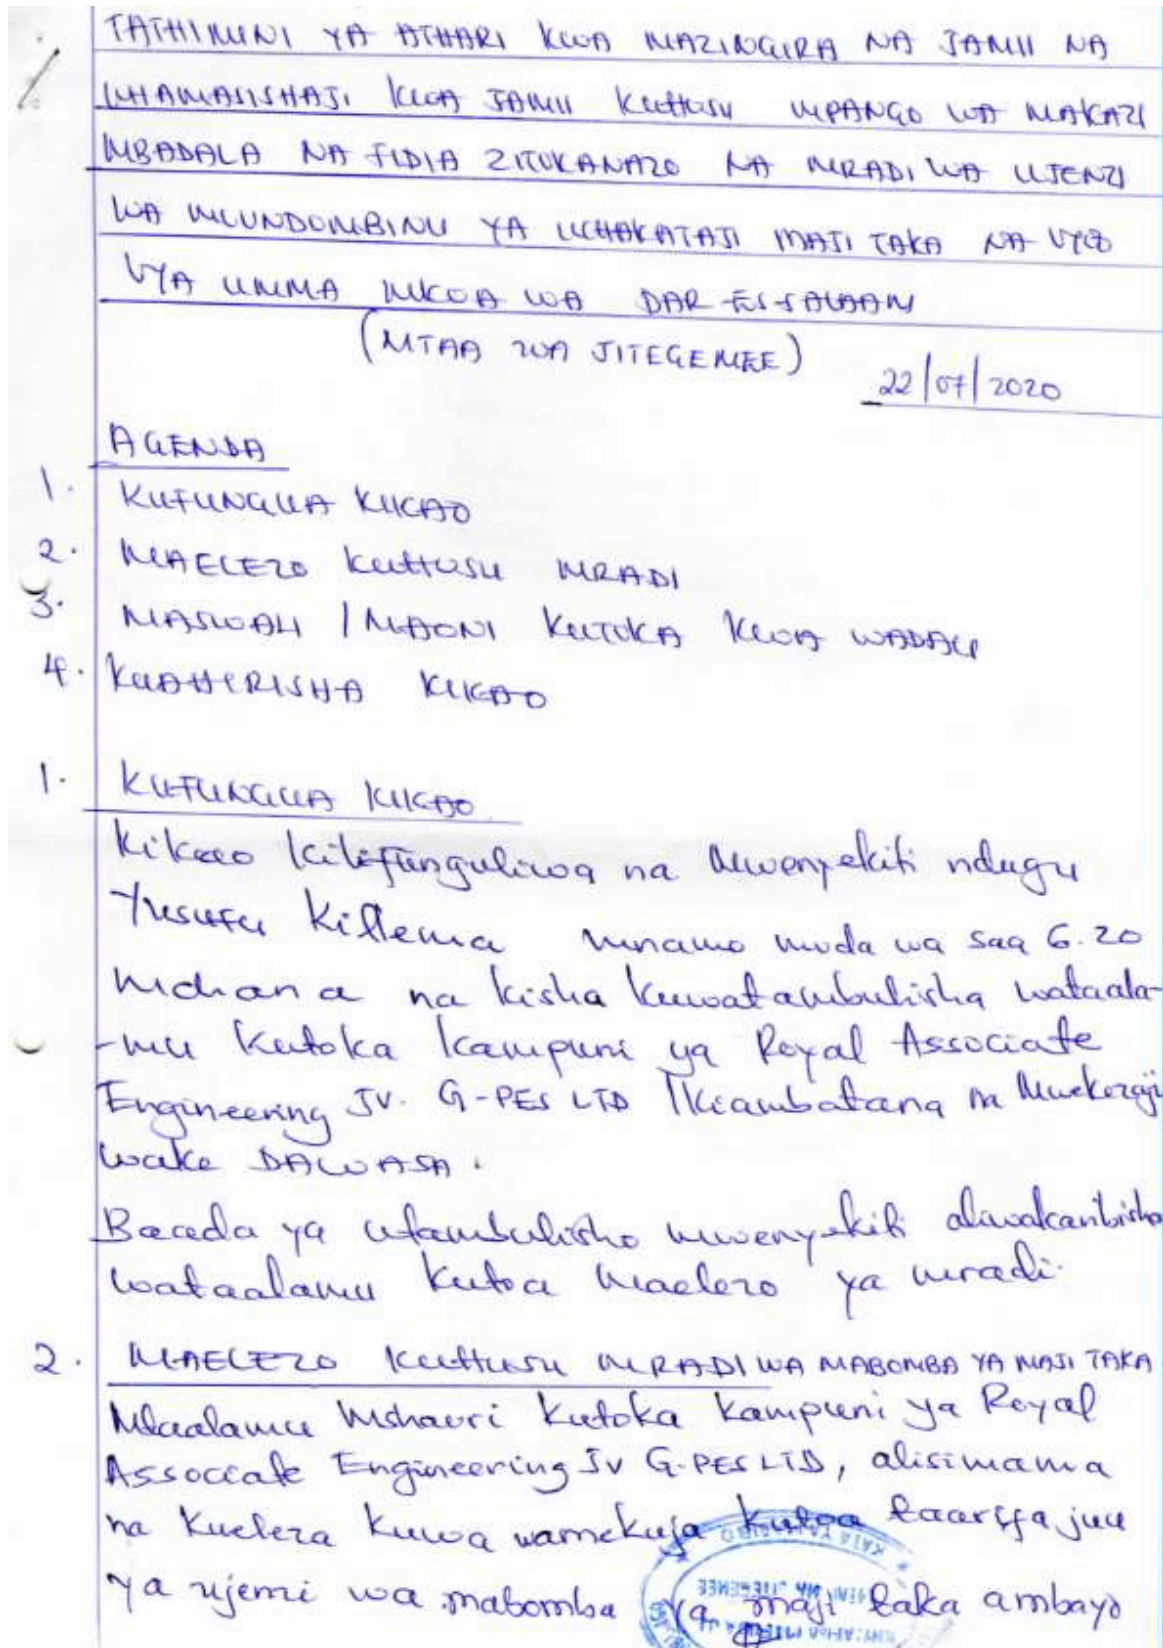 TATHIMINI YA ATHARI KWA MAZINGIRA NA JAMII NA
UHAMASISHAJI KWA JAMII KUHUSU MPANGO WA MAKAZI
MBADALA NA FIDIA ZITOKANAZO NA MRADI WA UJENZI
WA MIUNDOMBINU YA UCHAKATAJI MAJI TAKA NA VYOO
VYA UMMA MKOA WA DAR-ES-SALAAM
(MTAA WA JITEGEMEE)
22/07/2020
AGENDA
1. KUFUNGUA KIKAO
2. MAELEZO KUHUSU MRADI
3. MASWALI / MAONI KUTOKA KWA WADAU
4. KUAHIRISHA KIKAO
1. KUFUNGUA KIKAO
Kikao kilifunguliwa na Mwenyekiti ndugu
Yusufu Killema mnamo muda wa saa 6.20
Mchana na kisha kuwatambulisha wataala-
-mu kutoka kampuni ya Royal Associate
Engineering JV. G-PES LTD Ikiambatana na Mwekezaji
wake DAWASA.
Baada ya utambulisho mwenyekiti aliwakaribisha
wataalamu kutoa maelezo ya mradi.
2. MAELEZO KUHUSU MRADI WA MABOMBA YA MAJI TAKA
Mtaalamu Mshauri kutoka kampuni ya Royal
Associate Engineering JV G-PES LTD, alisimama
na kueleza kuwa wamekuja kutoa taarifa juu
ya ujenzi wa mabomba ya maji taka ambayo